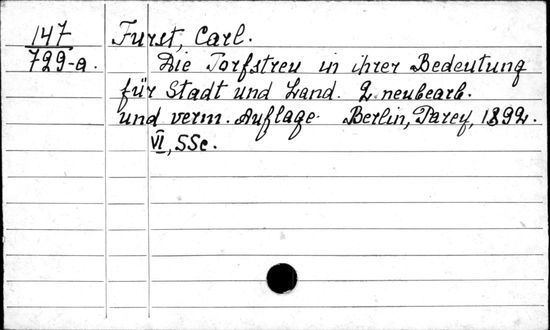 147
729-a.
Fürst, Carl.
Die Torfstreu in ihrer Bedeutung
für Stadt und Land. 2. neubearb.
und verm. Auflage. Berlin, Parey, 1892.
VI, 55c.